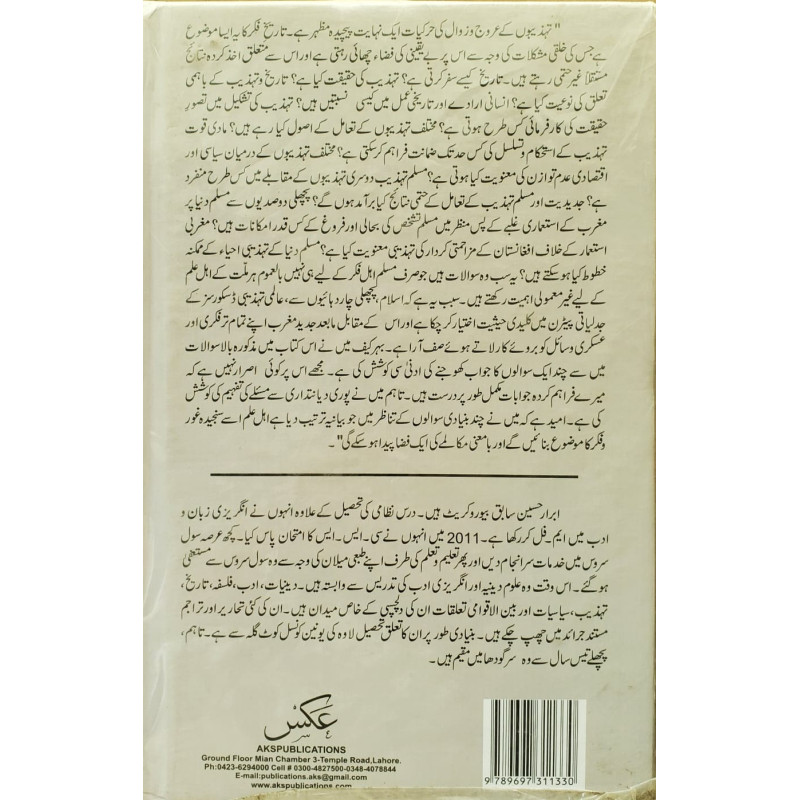 "تہذیبوں کے عروج و زوال کی حرکیات ایک نہایت پیچیدہ مظہر ہے۔ تاریخِ فکر کا یہ ایسا موضوع
ہے جس کی خلقی مشکلات کی وجہ سے اس پر بے یقینی کی فضاء چھائی رہتی ہے اور اس سے متعلق اخذ کردہ نتائج
مستقلاً غیر حتمی رہتے ہیں۔ تاریخ کیسے سفر کرتی ہے؟ تہذیب کی حقیقت کیا ہے؟ تاریخ و تہذیب کے باہمی
تعلق کی نوعیت کیا ہے؟ انسانی ارادے اور تاریخی عمل میں کیسی نسبتیں ہیں؟ تہذیب کی تشکیل میں تصورِ
حقیقت کی کارفرمائی کس طرح ہوتی ہے؟ مختلف تہذیبوں کے تعامل کے اصول کیا رہے ہیں؟ مادی قوت
تہذیب کے استحکام و تسلسل کی کس حد تک ضمانت فراہم کر سکتی ہے؟ مختلف تہذیبوں کے درمیان سیاسی اور
اقتصادی عدم توازن کی معنویت کیا ہوتی ہے؟ مسلم تہذیب دوسری تہذیبوں کے مقابلے میں کس طرح منفرد
ہے؟ جدیدیت اور مسلم تہذیب کے تعامل کے حتمی نتائج کیا برآمد ہوں گے؟ پچھلی دو صدیوں سے مسلم دنیا پر
مغرب کے استعماری غلبے کے پس منظر میں مسلم تشخص کی بحالی اور فروغ کے کس قدر امکانات ہیں؟ مغربی
استعمار کے خلاف افغانستان کے مزاحمتی کردار کی تہذیبی معنویت کیا ہے؟ مسلم دنیا کے تہذیبی احیاء کے ممکنہ
خطوط کیا ہو سکتے ہیں؟ یہ سب وہ سوالات ہیں جو صرف مسلم اہل فکر کے لیے ہی نہیں بالعموم ہر ملّت کے اہل علم
کے لیے غیر معمولی اہمیت رکھتے ہیں۔ سبب یہ ہے کہ اسلام پچھلی چار دہائیوں سے، عالمی تہذیبی ڈسکورسز کے
جدلیاتی پیٹرن میں کلیدی حیثیت اختیار کر چکا ہے اور اس کے مقابل مابعد جدید مغرب اپنے تمام تر فکری اور
عسکری وسائل کو بروئے کار لاتے ہوئے صف آرا ہے۔ بہر کیف میں نے اس کتاب میں مذکورہ بالا سوالات
میں سے چند ایک سوالوں کا جواب کھوجنے کی ادنیٰ سی کوشش کی ہے۔ مجھے اس پر کوئی اصرار نہیں ہے کہ
میرے فراہم کردہ جوابات مکمل طور پر درست ہیں۔ تاہم میں نے پوری دیانتداری سے مسئلے کی تفہیم کی کوشش
کی ہے۔ امید ہے کہ میں نے چند بنیادی سوالوں کے تناظر میں جو بیانیہ ترتیب دیا ہے اہل علم اسے سنجیدہ غور
و فکر کا موضوع بنائیں گے اور بامعنی مکالمے کی ایک فضا پیدا ہو سکے گی"۔
ابرار حسین سابق بیوروکریٹ ہیں۔ درس نظامی کی تحصیل کے علاوہ انہوں نے انگریزی زبان و
ادب میں ایم۔فل کر رکھا ہے۔ 2011 میں انہوں نے سی۔ ایس۔ ایس کا امتحان پاس کیا۔ کچھ عرصہ سول
سروس میں خدمات سر انجام دیں اور پھر تعلیم و تعلم کی طرف اپنے طبعی میلان کی وجہ سے وہ سول سروس سے مستعفیٰ
ہو گئے۔ اس وقت وہ علوم دینیہ اور انگریزی ادب کی تدریس سے وابستہ ہیں۔ دینیات، ادب، فلسفہ، تاریخ،
تہذیب، سیاسیات اور بین الاقوامی تعلقات ان کی دلچسپی کے خاص میدان ہیں۔ ان کی کئی تحاریر اور تراجم
مستند جرائد میں چھپ چکے ہیں۔ بنیادی طور پر ان کا تعلق تحصیل لاوہ کی یونین کونسل کوٹ گلہ سے ہے۔ تاہم،
پچھلے تیس سال سے وہ سرگودھا میں مقیم ہیں۔
عکس
AKSPUBLICATIONS
Ground Floor Mian Chamber 3-Temple Road,Lahore.
Ph:0423-6294000 Cell # 0300-4827500-0348-4078844
E-mail:publications.aks@gmail.com
www.akspublications.com
9 789697 311330